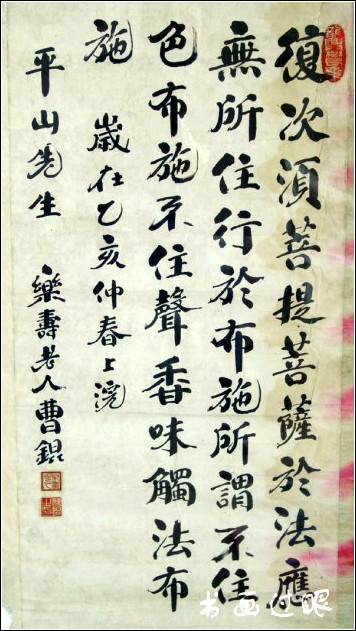 復次須菩提菩薩於法應
無所住行於布施所謂不住
色布施不住聲香味觸法布
施
歲在乙亥仲春上浣
平山先生
樂壽老人曹錕
书画过眼